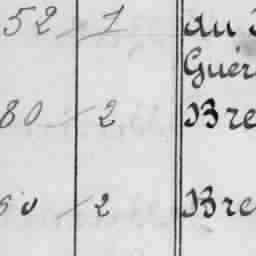 52 1 au
Guér
80 2 Bre
60 2 Bre